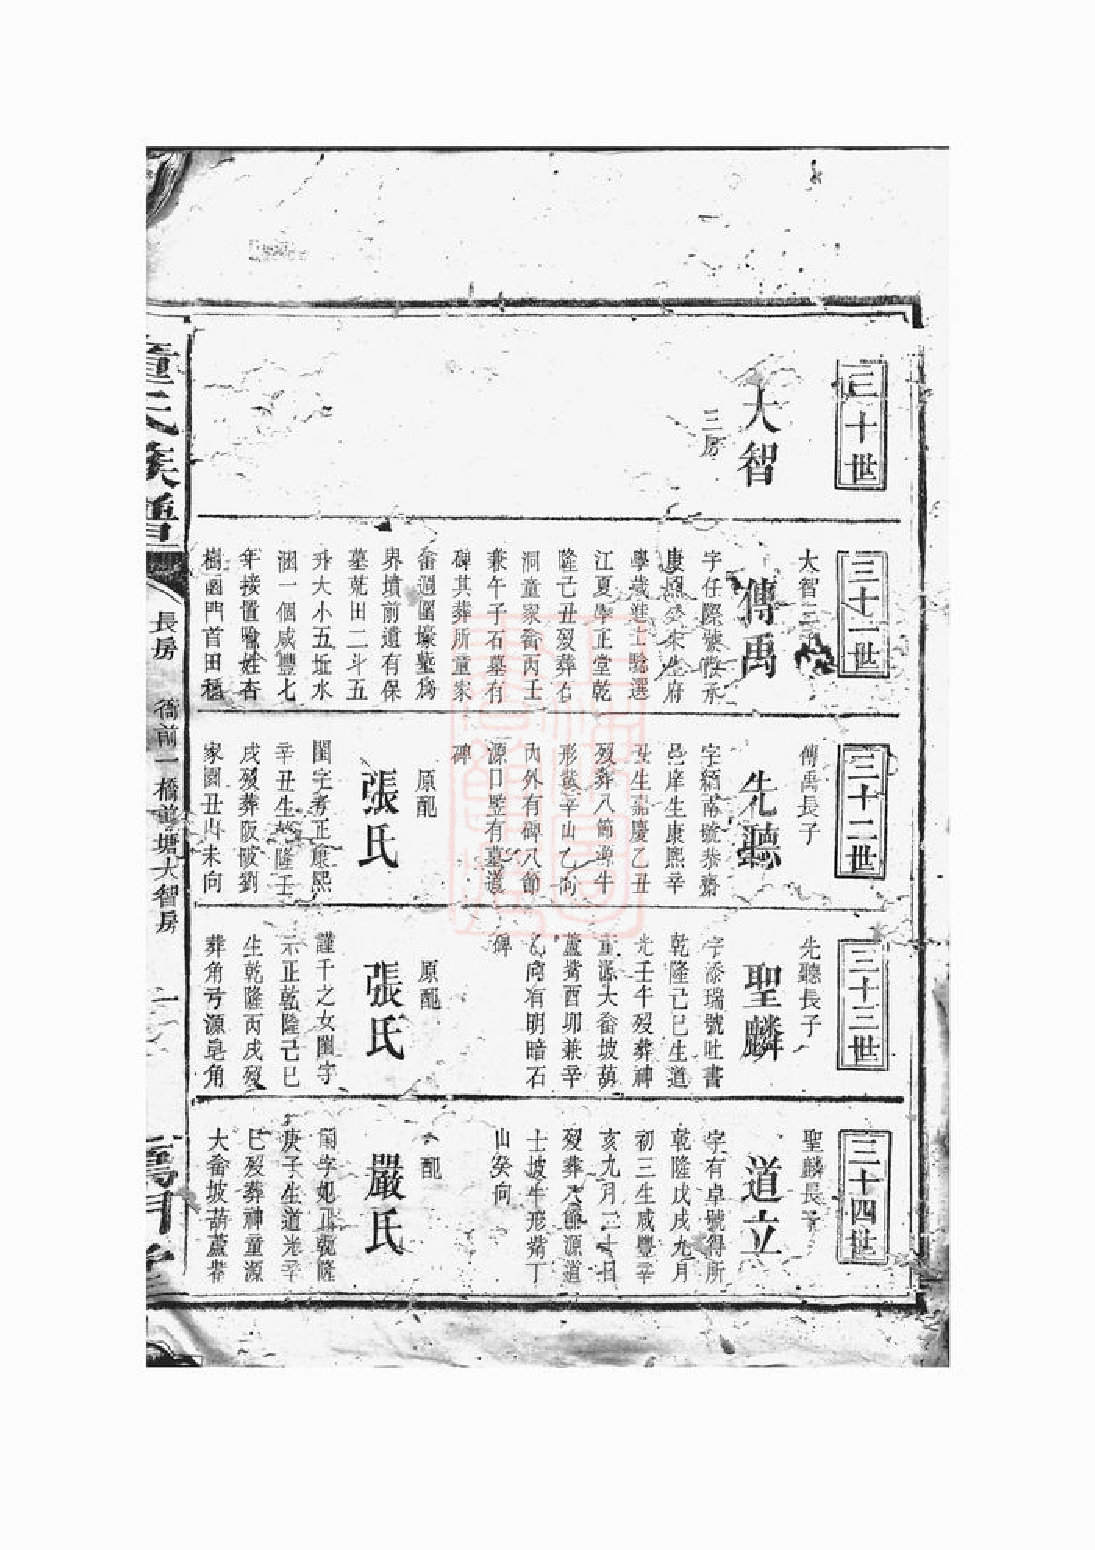 三十世
大智
三房
三十一世
大智三子
傳禹
字仔際號
康熙癸未生府
學歲進士驗選
江夏學正堂乾
隆己丑歿葬石
洞童家畲丙壬
兼午子石墓有
碑其葬所童家
畲週圍壕塹爲
界墳前遺有保
墓荒田二斗五
升大小五坵水
涃一個咸豐七
年接置喻姓杏
樹園門首田
三十二世
傳禹長子
先聽
字緒南號恭齋
邑庠生康熙辛
丑生嘉慶乙丑
歿葬八節源牛
形嘴辛山乙向
內外有碑八節
源口竪有墓道
碑
原配
張氏
閨字孝正康熙
辛丑生乾隆壬
戌歿葬阪坡劉
家園丑山未向
三十三世
先聽長子
聖麟
字添瑞號吐書
乾隆己巳生道
光壬午歿葬神
童源大畲坡葫
蘆嘴酉卯兼辛
乙向有明暗石
碑
原配
張氏
謹千之女閨字
示正乾隆己巳
生乾隆丙戌歿
葬角弓源皂角
三十四世
聖麟長子
道立
字有卓號得所
乾隆戊戌九月
初三生咸豐辛
亥九月二十日
歿葬八節源道
士坡牛形嘴丁
山癸向
配
嚴氏
閨字如正乾隆
庚子生道光辛
巳歿葬神童源
大畲坡葫蘆嘴
童氏族譜
長房
衙前一橋前塘大智房
一